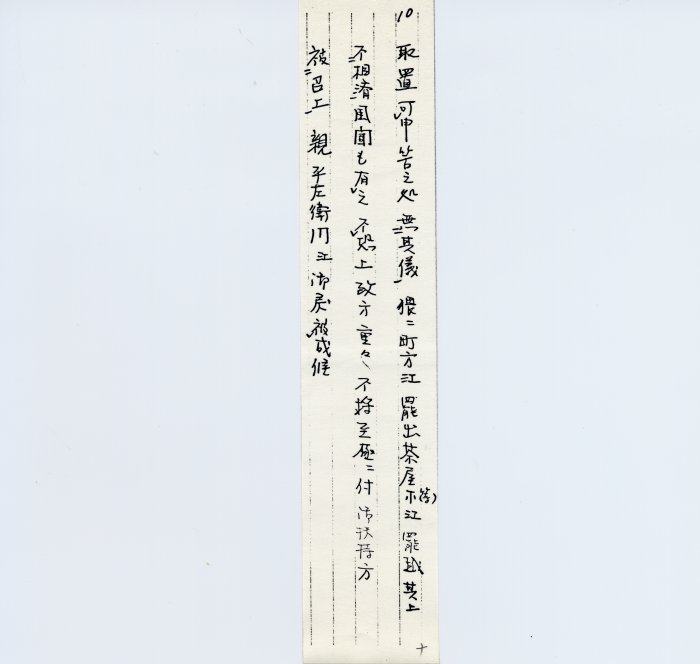 10
取置可申筈之処無其儀猥ニ町方江罷出茶屋ホ(等)江罷越其上
不相済風聞も有之不恐上致方重々不埒至極ニ付御扶持方
被召上親平左衛門江御戻被成候
十